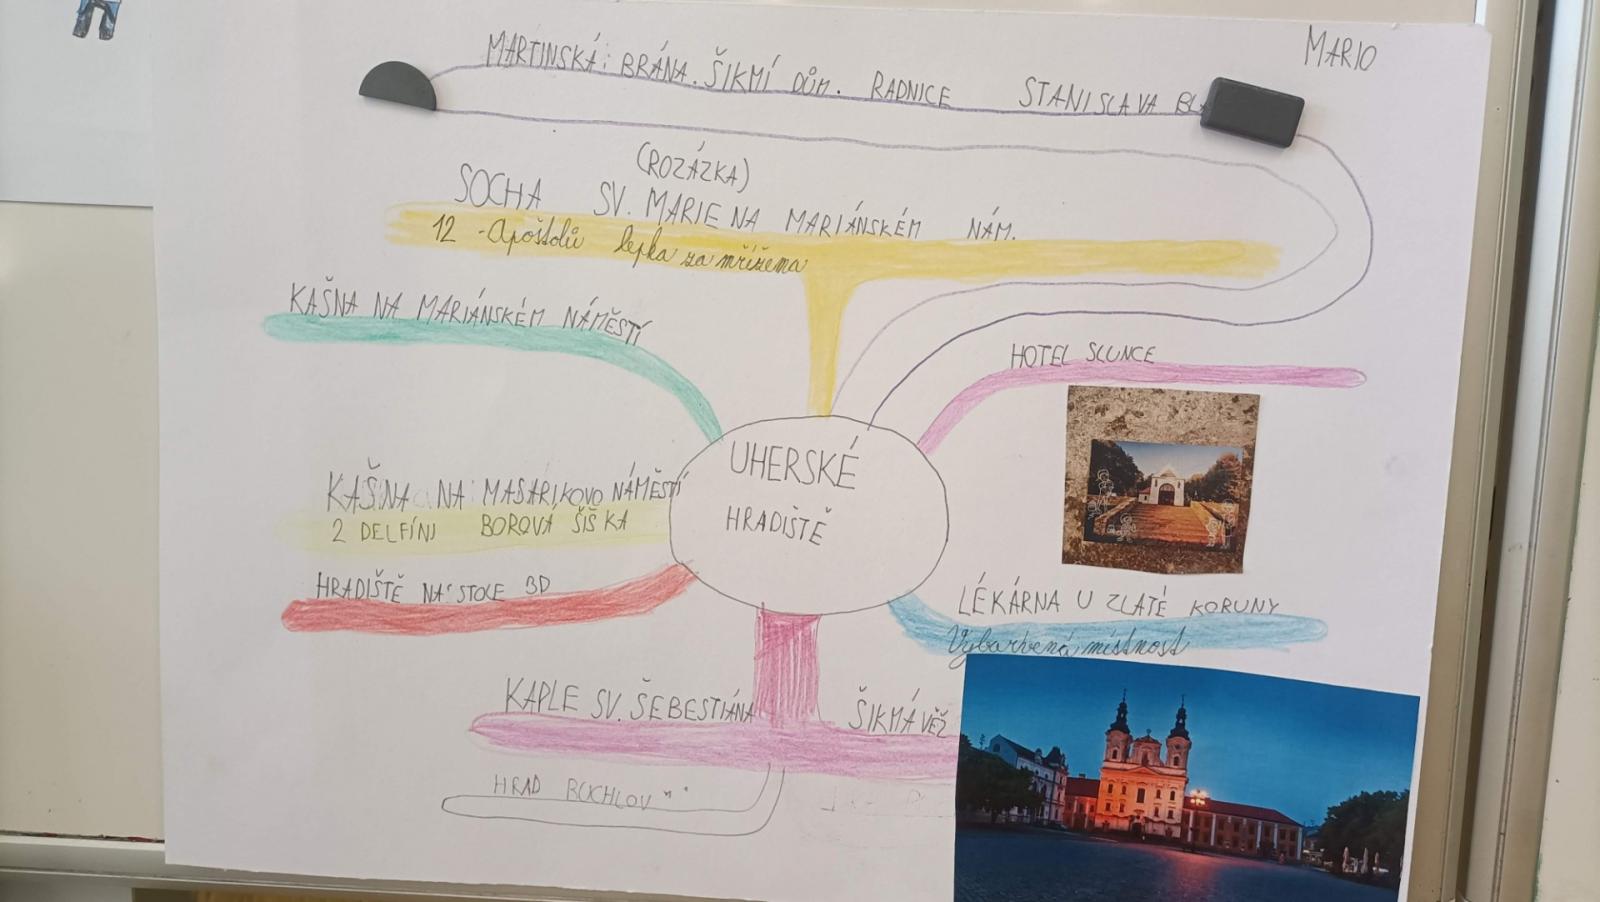 MARIO
MARTINSKÁ BRÁNA. ŠIKMÍ DŮM. RADNICE STANISLAVA
(ROZÁZKA)
SOCHA SV. MARIE NA MARIÁNSKÉM NÁM.
12 - Apoštolů lepka za mřížema
KAŠNA NA MARIÁNSKÉM NÁMĚSTÍ
HOTEL SLUNCE
UHERSKÉ
HRADIŠTĚ
KAŠNA NA MASARIKOVO NÁMĚSTÍ
2 DELFÍNI BOROVÁ ŠIŠKA
HRADIŠTĚ NA STOLE 3D
LÉKÁRNA U ZLATÉ KORUNY
Vybarvená místnost
KAPLE SV. ŠEBESTIÁNA ŠIKMÁ VĚŽ
HRAD BUCHLOV